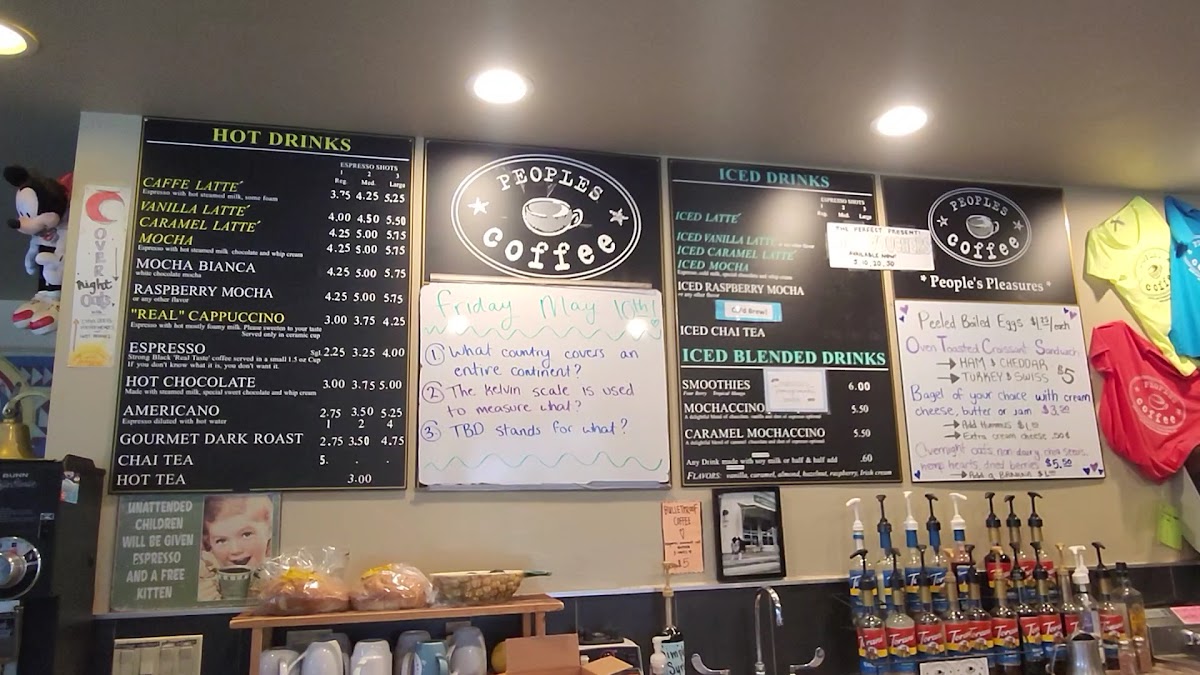 HOT DRINKS
ESPRESSO SHOTS
1 2 3
Reg. Med. Large
CAFFE LATTE´ 3.75 4.25 5.25
Espresso with hot steamed milk, some foam
VANILLA LATTE´ 4.00 4.50 5.50
CARAMEL LATTE´ 4.25 5.00 5.75
MOCHA 4.25 5.00 5.75
Espresso with hot steamed milk chocolate and whip cream
MOCHA BIANCA 4.25 5.00 5.75
white chocolate mocha
RASPBERRY MOCHA 4.25 5.00 5.75
or any other flavor
"REAL" CAPPUCCINO 3.00 3.75 4.25
Espresso with hot mostly foamy milk. Please sweeten to your taste
Served only in ceramic cup
ESPRESSO Sgl. 2.25 3.25 4.00
Strong Black 'Real Taste' coffee served in a small 1.5 oz Cup
If you don't know what it is, you don't want it.
HOT CHOCOLATE 3.00 3.75 5.00
Made with steamed milk, special sweet chocolate and whip cream
AMERICANO 2.75 3.50 5.25
Espresso diluted with hot water 1 2 4
GOURMET DARK ROAST 2.75 3.50 4.75
CHAI TEA 5. . .
HOT TEA 3.00
PEOPLES
coffee
Friday May 10th!
① What country covers an
entire continent?
② The kelvin scale is used
to measure what?
③ TBD stands for what?
ICED DRINKS
ESPRESSO SHOTS
1 2 3
Reg. Med. Large
ICED LATTE´
ICED VANILLA LATTE
ICED CARAMEL LATTE´
ICED MOCHA
Espresso, cold milk, special chocolate and whip cream
ICED RASPBERRY MOCHA
or any other flavor
THE PERFECT PRESENT!
AVAILABLE NOW!
5, 10, 20, 50
Cold Brew!
ICED CHAI TEA
ICED BLENDED DRINKS
SMOOTHIES 6.00
Four Berry Tropical Mango
MOCHACCINO 5.50
CARAMEL MOCHACCINO 5.50
Any Drink made with soy milk or half & half add .60
FLAVORS: vanilla, caramel, almond, hazelnut, raspberry, Irish cream
PEOPLES
coffee
* People's Pleasures *
Peeled Boiled Eggs $1.25/each
Oven Toasted Croissant Sandwich
→ HAM & CHEDDAR
→ TURKEY & SWISS $5
Bagel of your choice with cream
cheese, butter or jam $3.50
→ Add Hummus $1.50
→ Extra cream cheese .50¢
Overnight oats, non dairy, chia seeds,
hemp hearts, dried berries $5.50
→ Add a BANANA $1.00
COVER
Right
UNATTENDED
CHILDREN
WILL BE GIVEN
ESPRESSO
AND A FREE
KITTEN
BULLETPROOF
COFFEE
$5
BUNN
PEOPLES
coffee
Torani
Torani
Torani